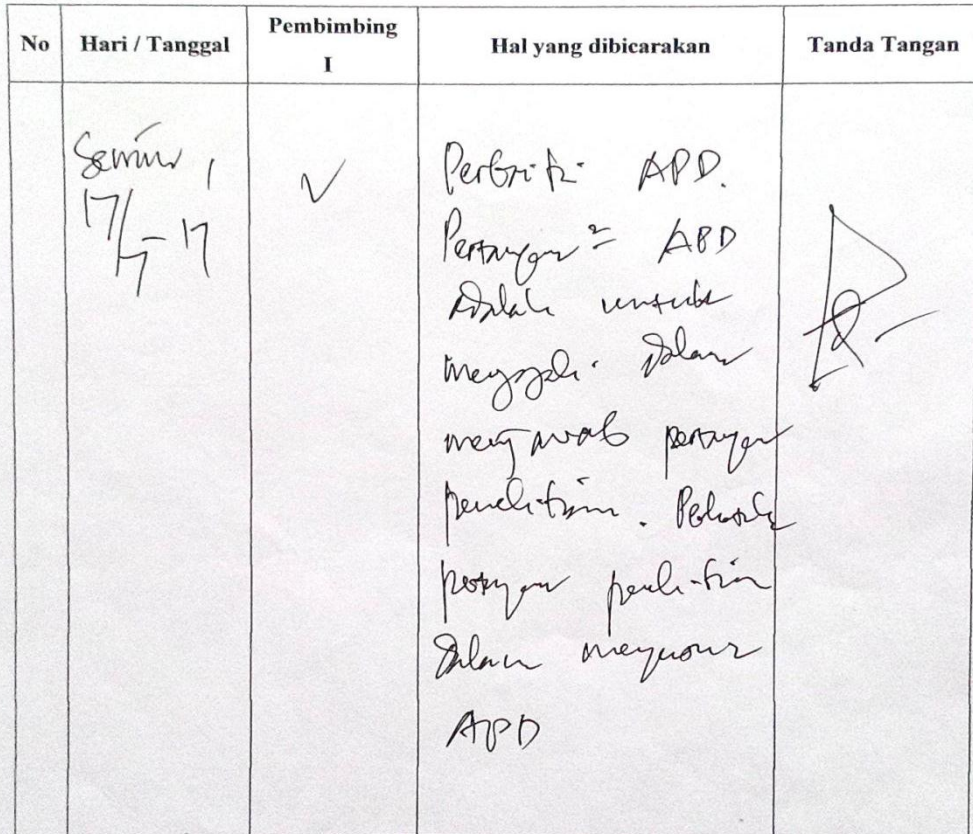 No Hari / Tanggal Pembimbing I Hal yang dibicarakan Tanda Tangan
Senin, 17/7-17 √ Perbaiki APD.
Pertanyaan² APD
adalah untuk
menggali dalam
menjawab pertanyaan
penelitian. Perhatikan
pertanyaan penelitian
dalam menyusun
APD